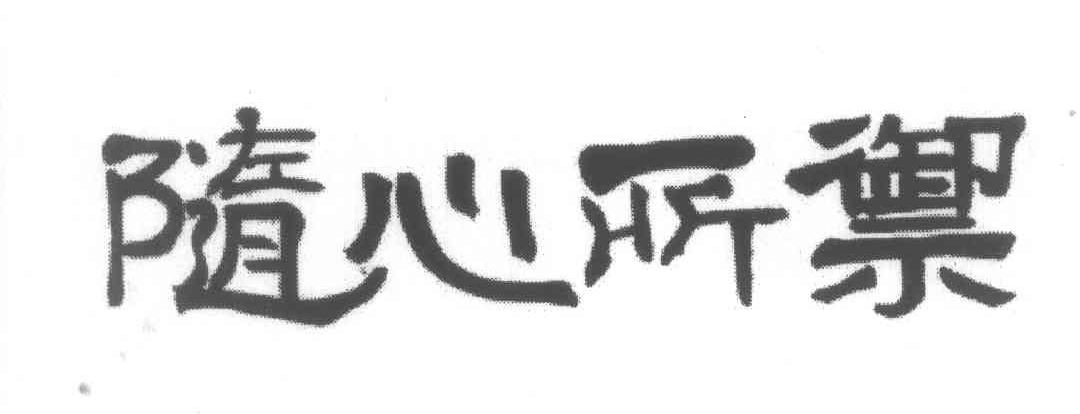 隨心所禦